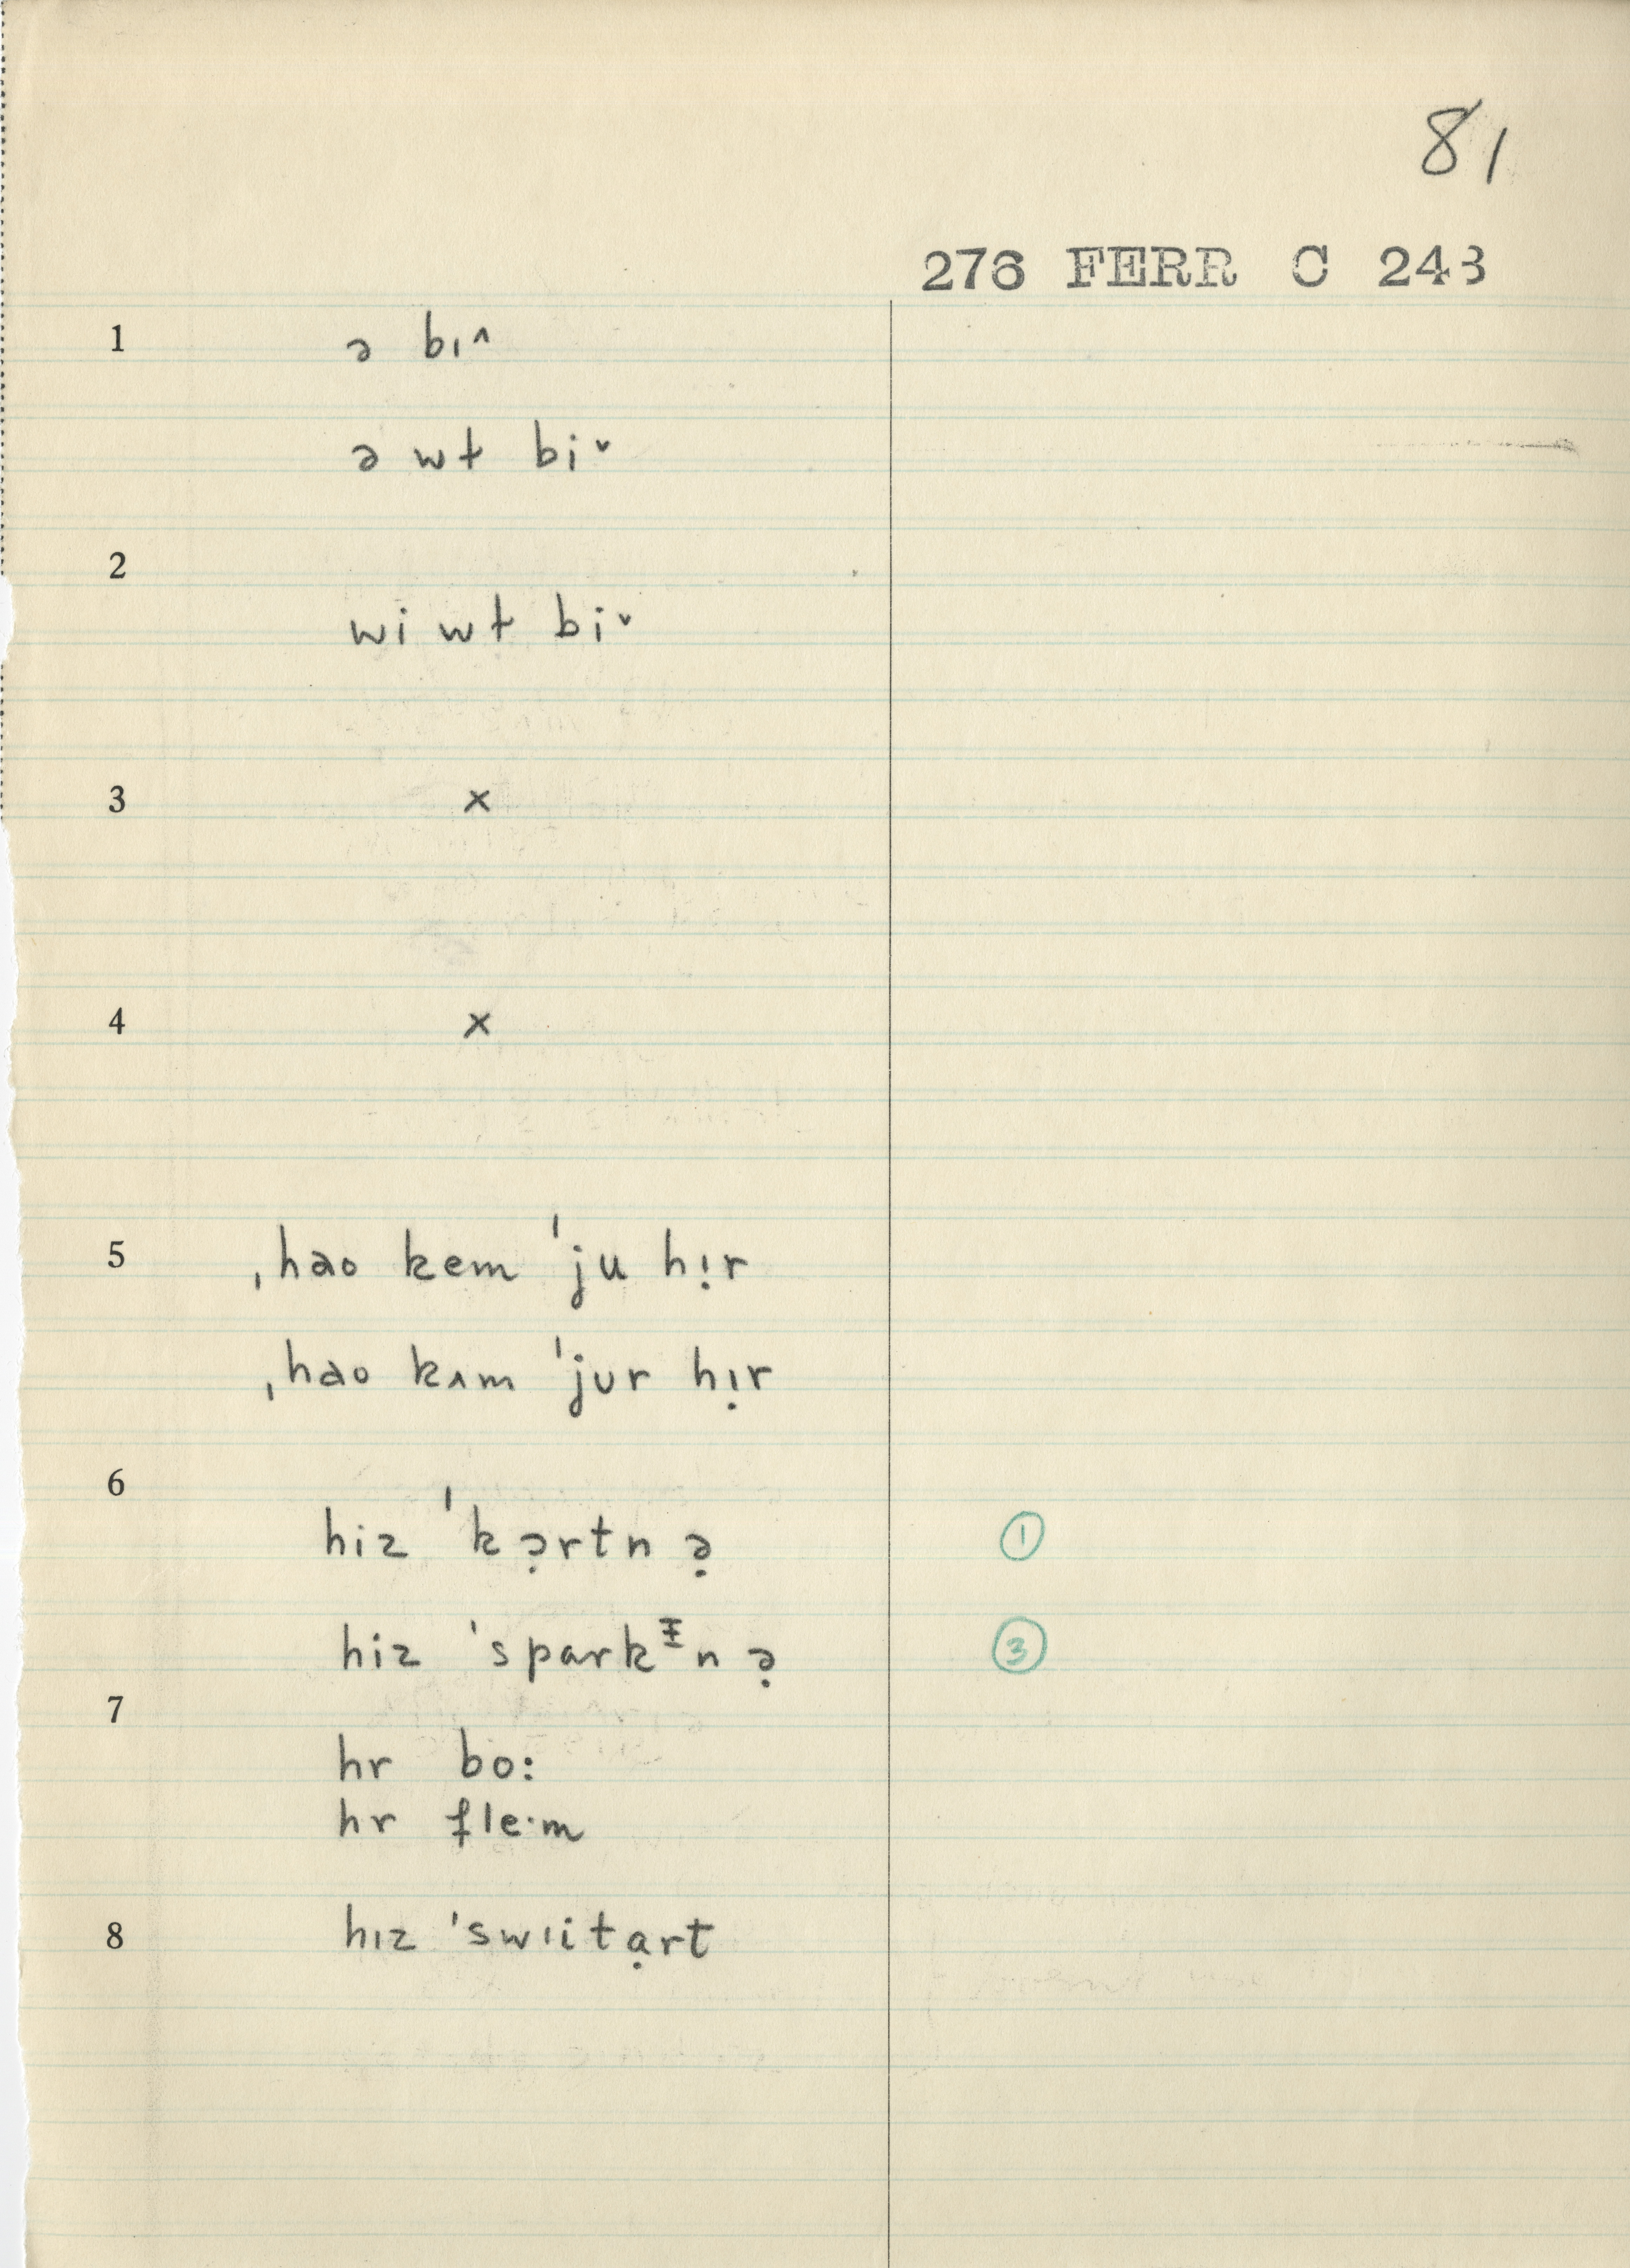 81
276 FERR C 243
1 ə bɪ˄
ə wt bi˅
2
wi wt bi˅
3 ×
4 ×
5 ˌhao kem ˈju hị̇r
ˌhao kʌm ˈjʊr hɪ̣r
6
hiz ˈkə̣rtn ə̣ ①
hiz ˈspark ᵻn ə̣ ③
7
hr bo:
hr fle·m
8 hɪz ˈswɪitạrt